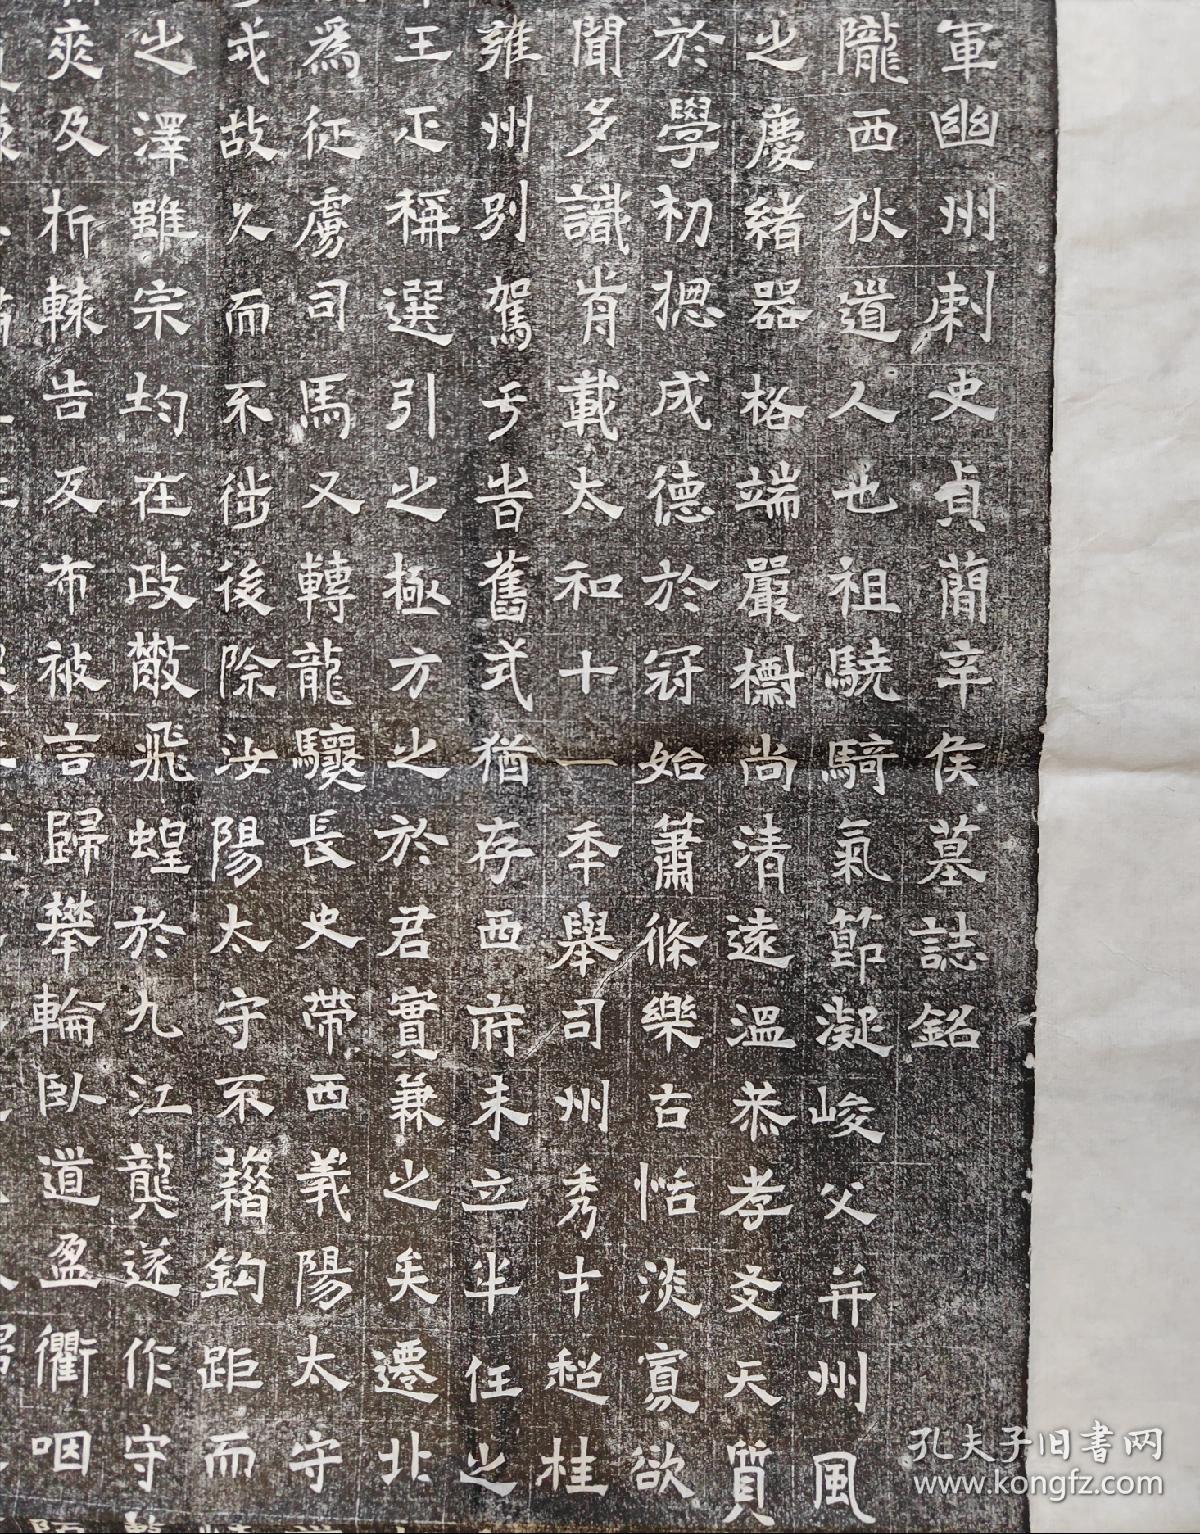 軍幽州刺史貞簡辛侯墓誌銘
隴西狄道人也祖驍騎氣節凝峻父并州風
之慶緒器格端嚴櫥尚清遠溫恭孝友天質
於學初摠成德於冠始蕭條樂古恬淡寡欲
聞多識肯載太和十一年舉司州秀才超桂
雍州別駕于昔舊式猶存西府未立半任之
王正稱選引之極方之於君實兼之矣遷北
為征虜司馬又轉龍驤長史帶西義陽太守
戎故久而不徙後除汝陽太守不藉鈎距而
之澤雖宗均在政皦飛蝗於九江龔遂作守
爽及析轅告反布被言歸攀輪臥道盈衢咽
孔夫子旧書网
www.kongfz.com